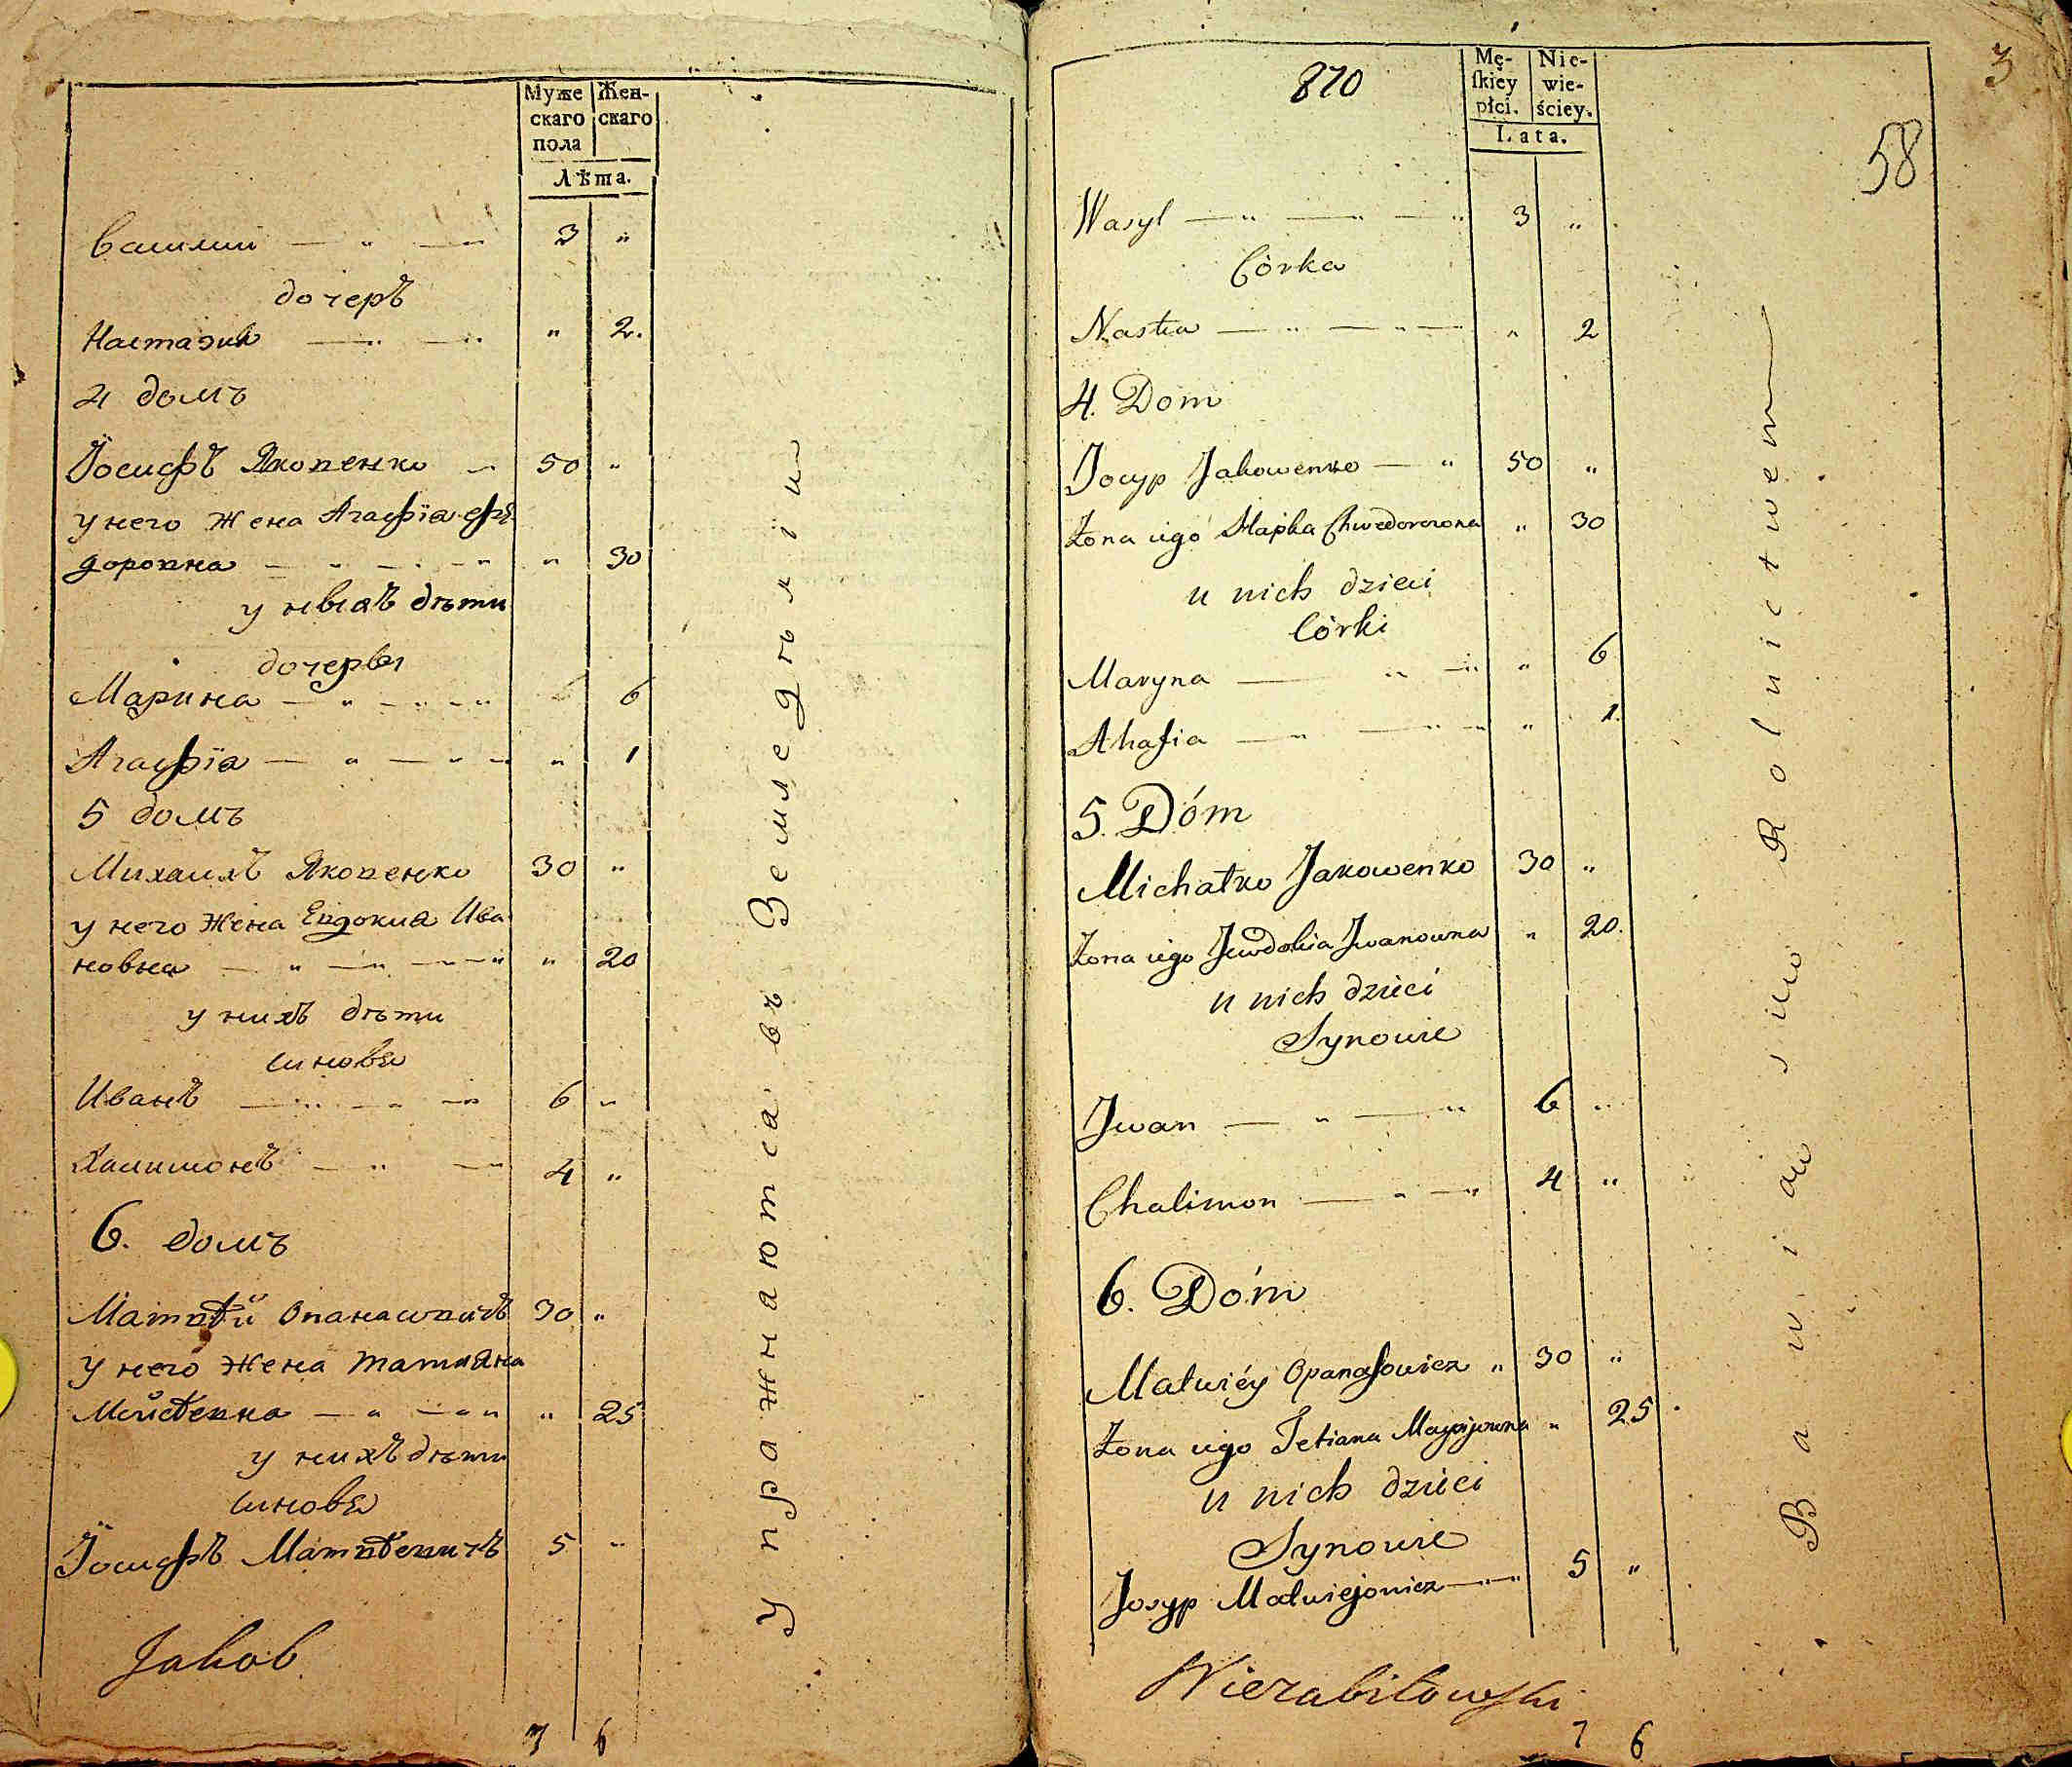 Муже Жен-
скаго скаго
пола
Лѣта.
Василий — „ — „ 3 „
дочеръ
Настазия — „ — „ „ 2.
4 домъ
Іосифъ Яковенко — 50 „
у него жена Агафіа Фѣ
доровна — „ — „ — „ „ 30
у ныхъ дѣти
дочеры
Марина — „ — „ — „ 6
Агафіа — „ — „ — „ 1
5 домъ
Михаилъ Яковенко 30 „
у него жена Евдокиа Ива
новна — „ — „ — „ „ 20
у нихъ дѣти
синовя
Иванъ — „ — „ — „ 6 „
Халимонъ — „ — „ 4 „
6. домъ
Матвѣй Опанасовичъ 30 „
у него жена татияна
Мойсѣевна — „ — „ „ 25
у нихъ дѣти
синовя
Іосифъ Матвѣевичъ 5 „
Jakob
7 6
Упражнаютса въ Земледѣліи
3
870
58
Mę- Nie-
skiey wie-
płci. ściey.
Lata.
Wasyl — „ — „ — „ 3 „
Córka
Nastia — „ — „ — „ 2
4. Dom
Josyp Jakowenko — „ 50 „
Żona iego Hapka Chwedorowna „ 30
u nich dzieci
Córki
Maryna — „ — „ „ 6
Ahafia — „ — „ — „ 1.
5. Dóm
Michałko Jakowenko 30 „
Żona iego Jewdokia Jwanowna „ 20.
u nich dzieci
Synowie
Jwan — „ — „ 6 „
Chalimon — „ — „ 4 „
6. Dóm
Matwiéy Opanasowicz „ 30 „
Żona iego Tetiana Moysijowna „ 25
u nich dzieci
Synowie
Josyp Matwiejowicz — „ 5 „
Wierzbiłowski
7 6
Bawiąu siuo Rolnictwem